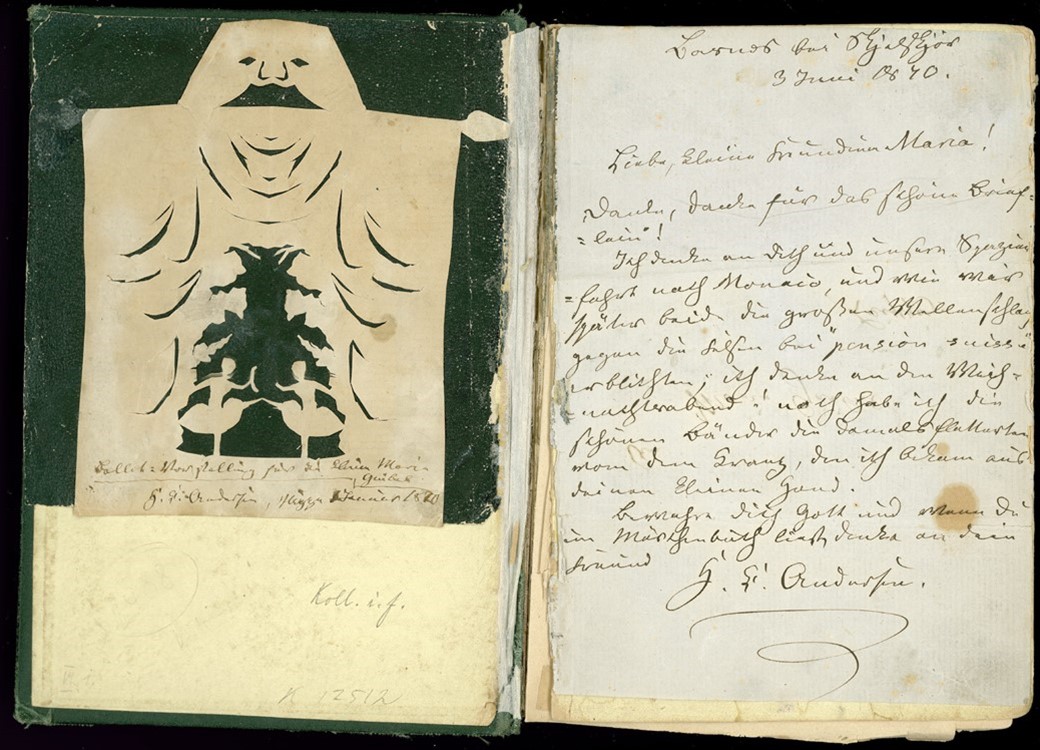 Ballet-Vorstellung für die kleine Maria
Gruber
H. C. Andersen, Nizza Januar 1870
Koll. i. f.
N 12512
Basnæs bei Skjelskjør
3 Juni 1870.
Liebe, kleine Freundinn Maria!
Danke, danke für das schöne Brief-
=lein!
Ich denke an Dich und unsere Spazier
=fahrt nach Monaco, und wie wir
später beide die großen Wellenschlag
gegen die Felsen bei pension suisse
erblickten; ich denke an den Weih-
=nachtsabend! noch habe ich die
schönen Bänder die damals flatterten
vom dem Kranz, den ich bekam aus
deinen kleinen Hand.
Bewahre dich Gott und wenn du
im Märchenbuch liest, denke an dein
Freund
H. C. Andersen.